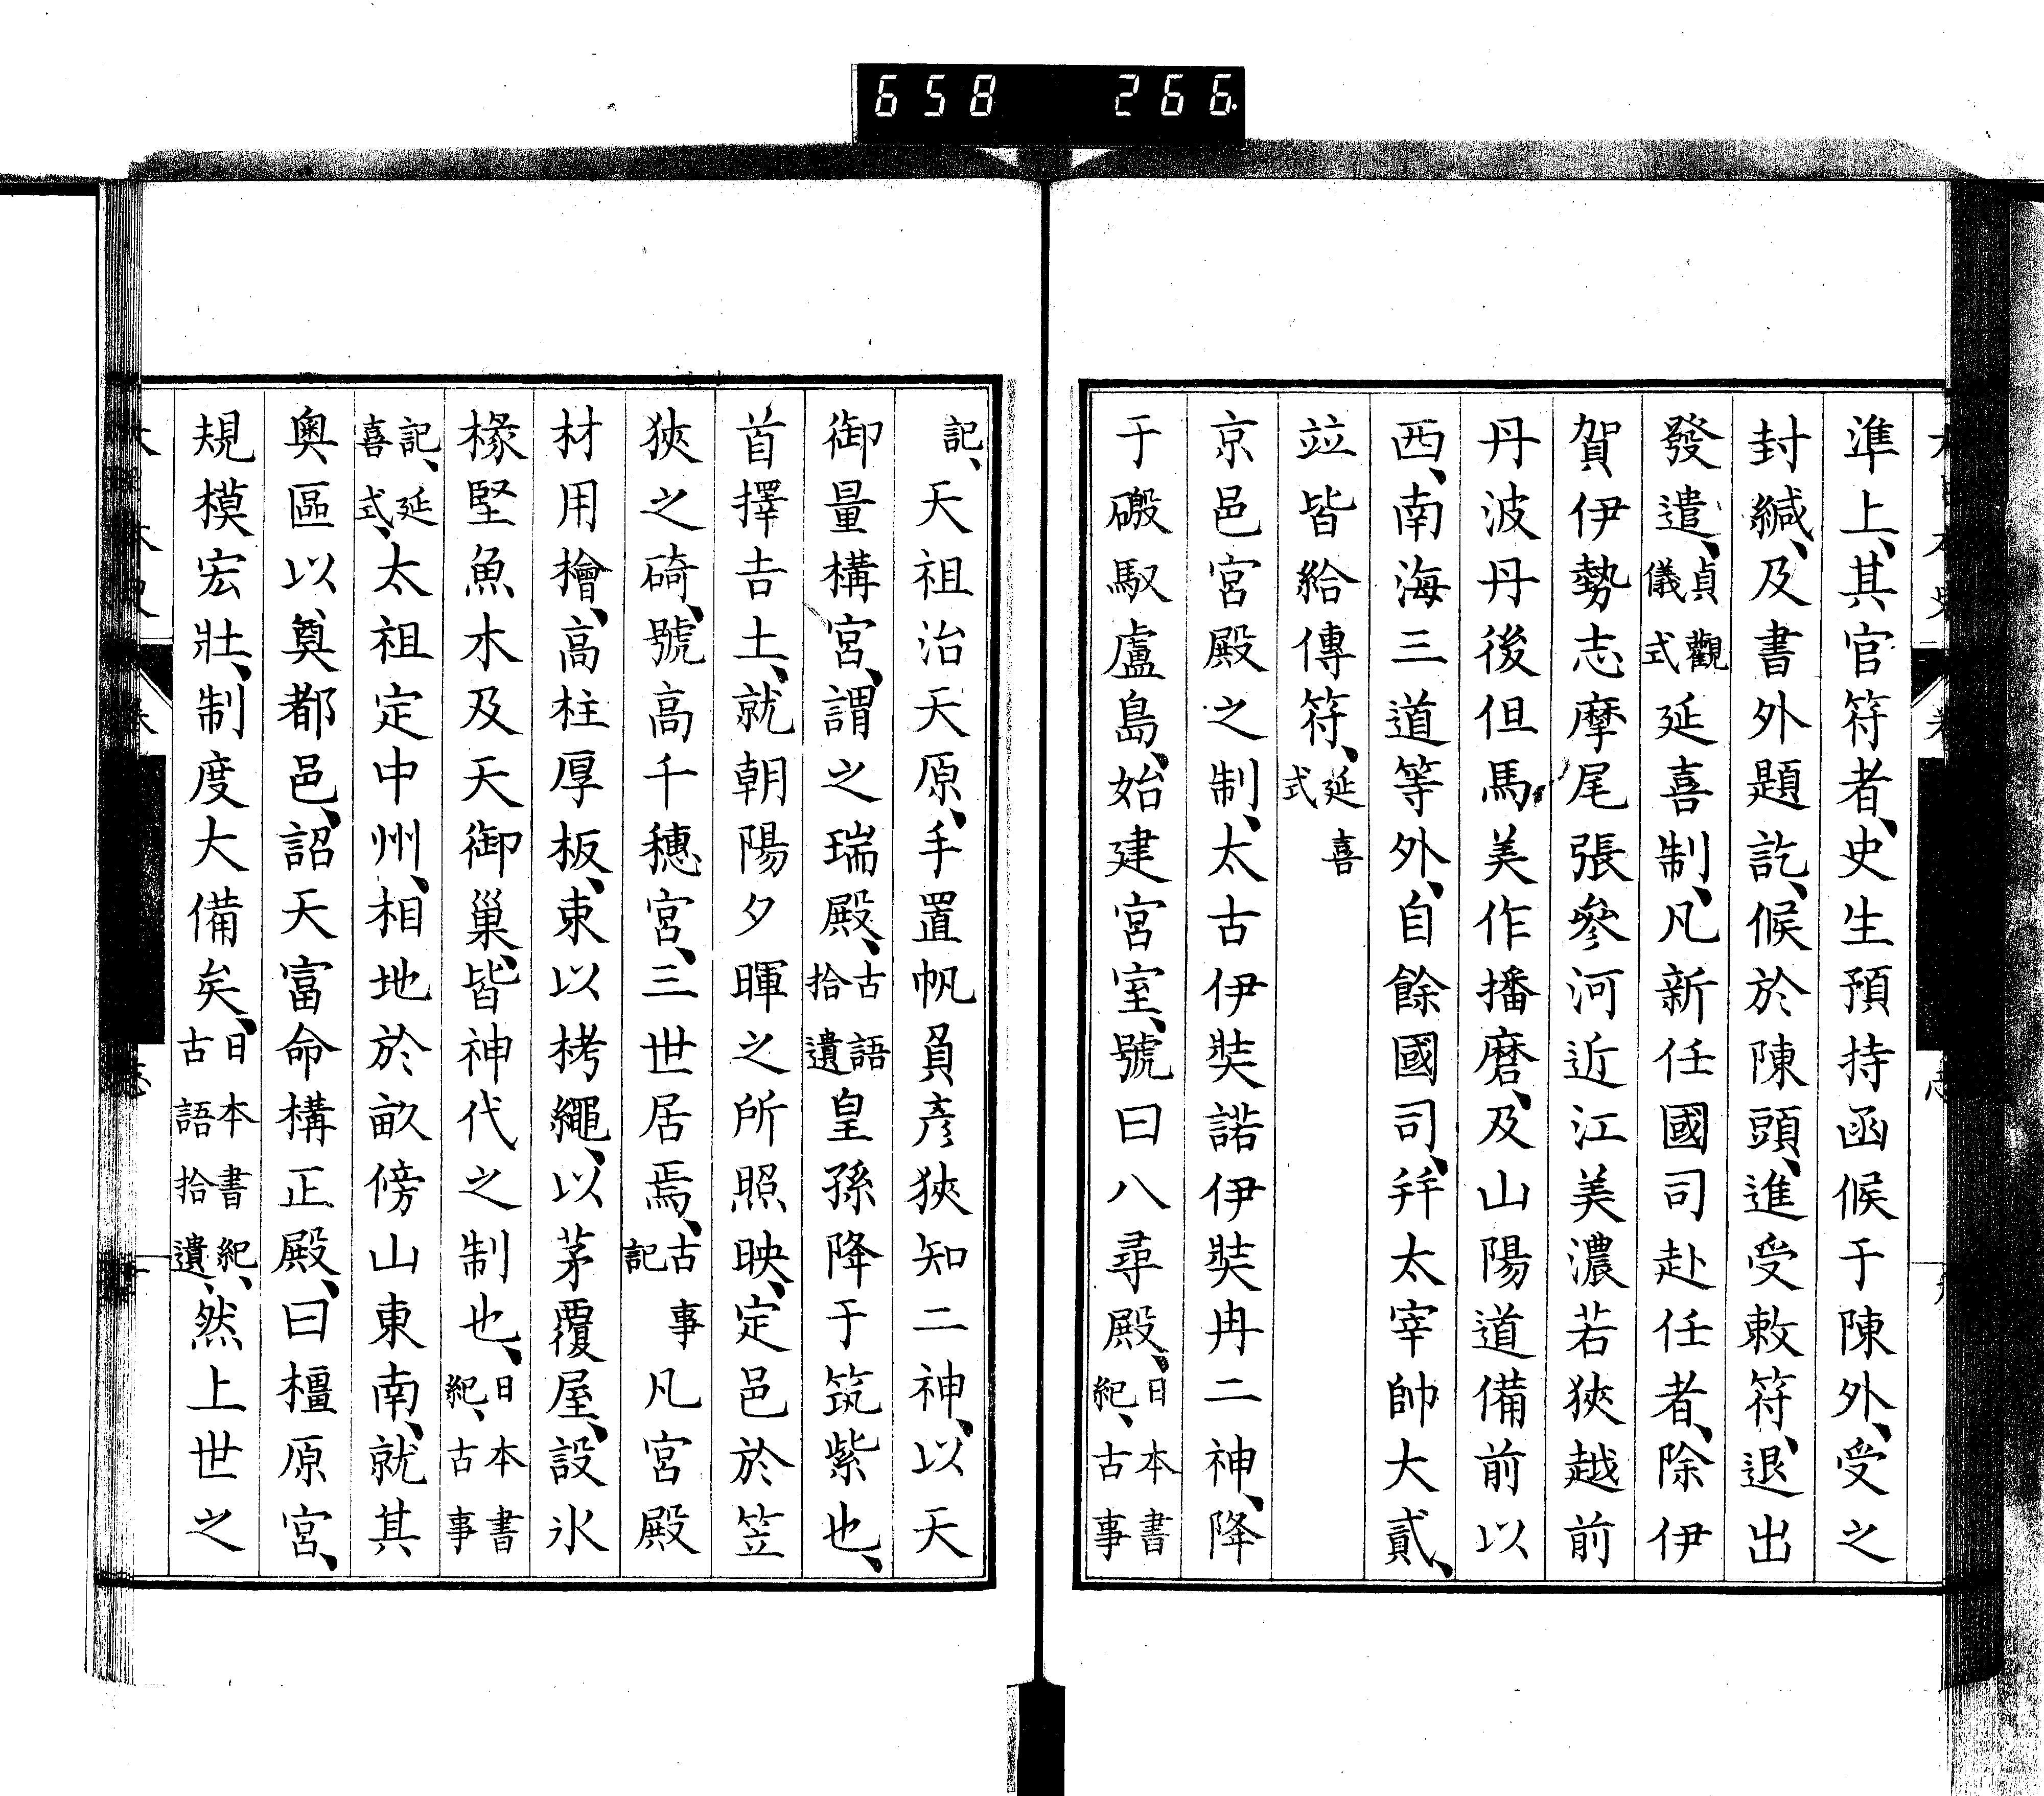 658 266
準上、其官符者、史生預持函候于陳外、受之
封緘、及書外題訖、候於陳頭、進受敕符、退出
發遣、貞觀儀式延喜制、凡新任國司赴任者、除伊
賀伊勢志摩尾張參河近江美濃若狹越前
丹波丹後但馬美作播磨、及山陽道備前以
西、南海三道等外、自餘國司、幷太宰帥大貳、
竝皆給傳符、延喜式
京邑宮殿之制、太古伊奘諾伊奘冉二神、降
于磤馭盧島、始建宮室、號曰八尋殿、日本書紀、古事
記、天祖治天原、手置帆負彦狹知二神、以天
御量構宮、謂之瑞殿、古語拾遺皇孫降于筑紫也、
首擇吉土、就朝陽夕暉之所照映、定邑於笠
狹之碕、號高千穗宮、三世居焉、古事記凡宮殿
材用檜、高柱厚板、束以栲繩、以茅覆屋、設氷
椽堅魚木及天御巢、皆神代之制也、日本書紀、古事
記、延喜式、太祖定中州、相地於畝傍山東南、就其
奧區以奠都邑、詔天富命構正殿、曰橿原宮、
規模宏壯、制度大備矣、日本書紀、古語拾遺、然上世之